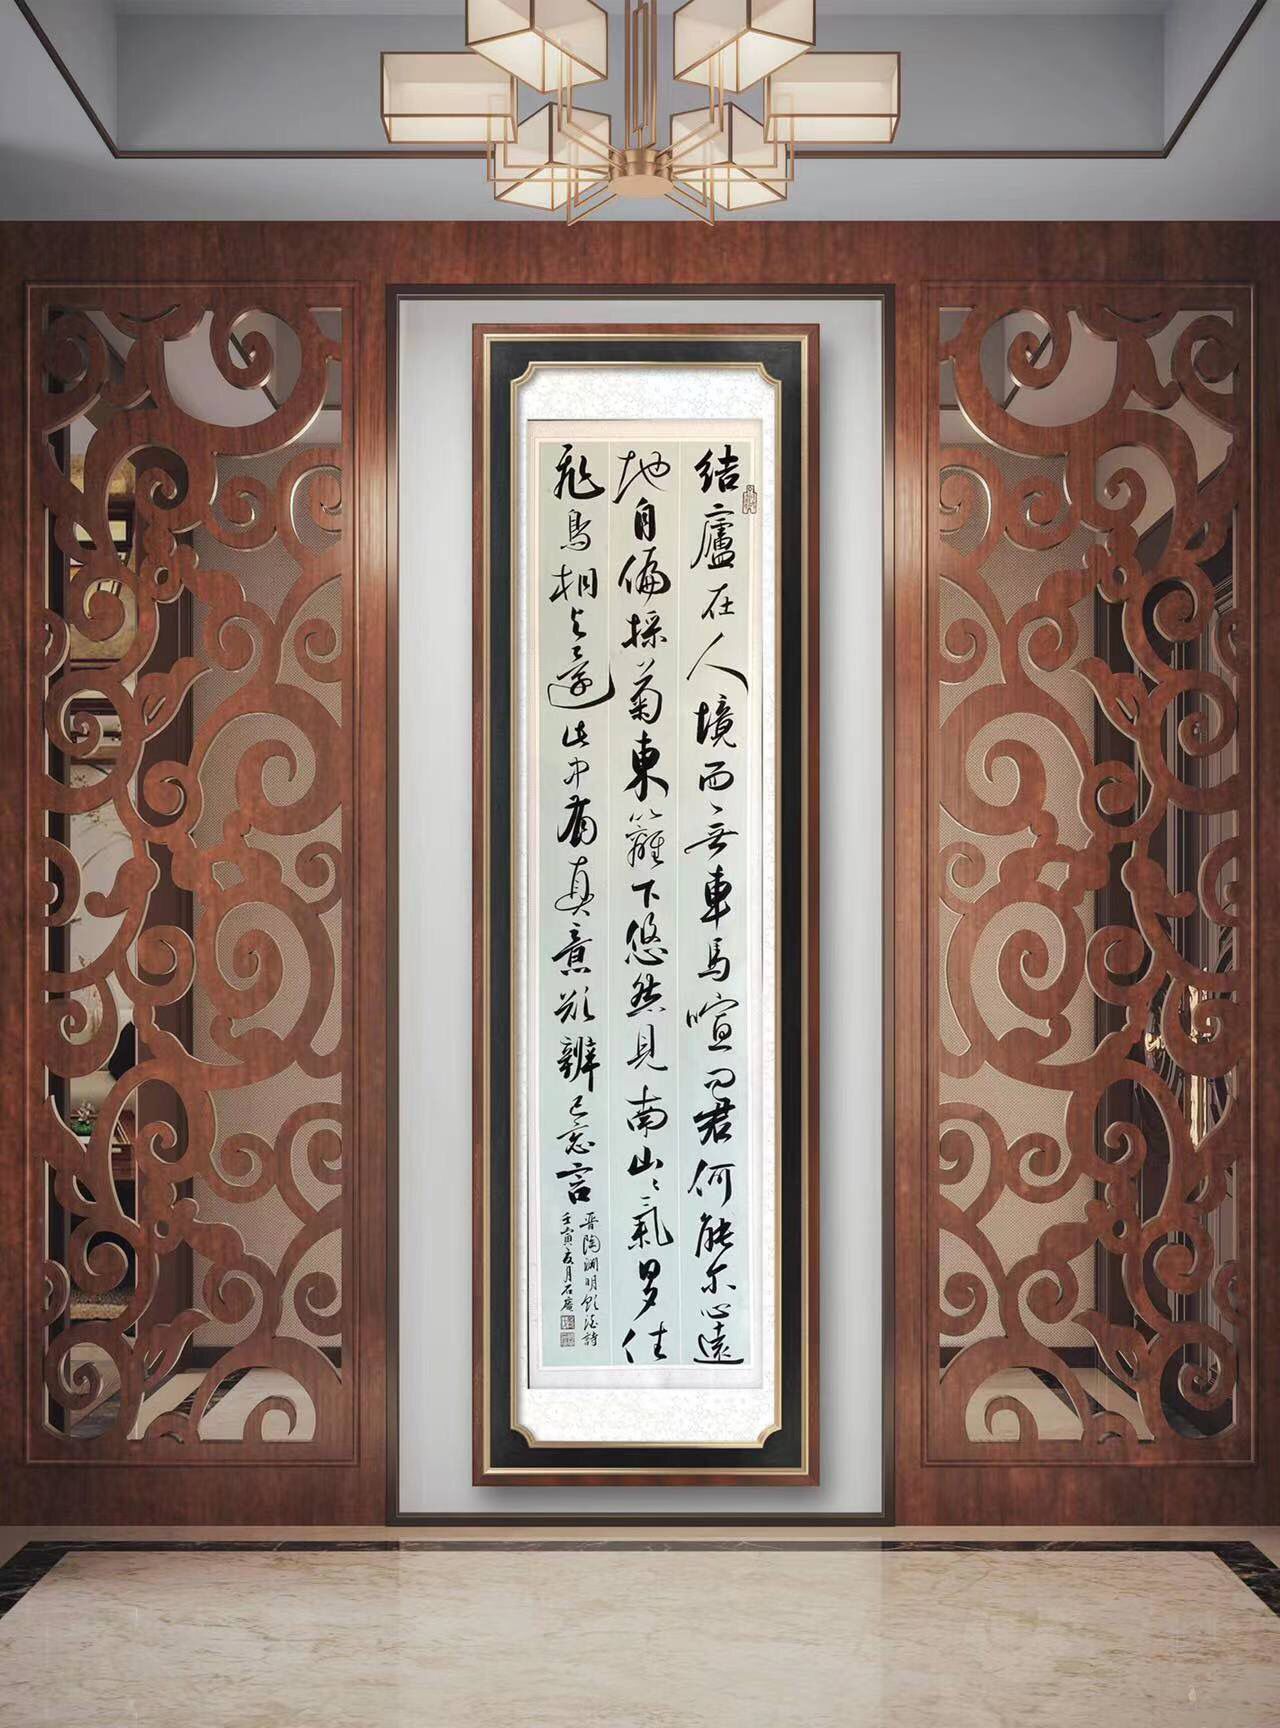 结廬在人境而无車馬喧问君何能尔心遠
地自偏採菊東籬下悠然見南山〻氣日夕佳
飛鳥相与還此中有真意欲辨已忘言
晋陶渊明飲酒詩
壬寅夏月石庵